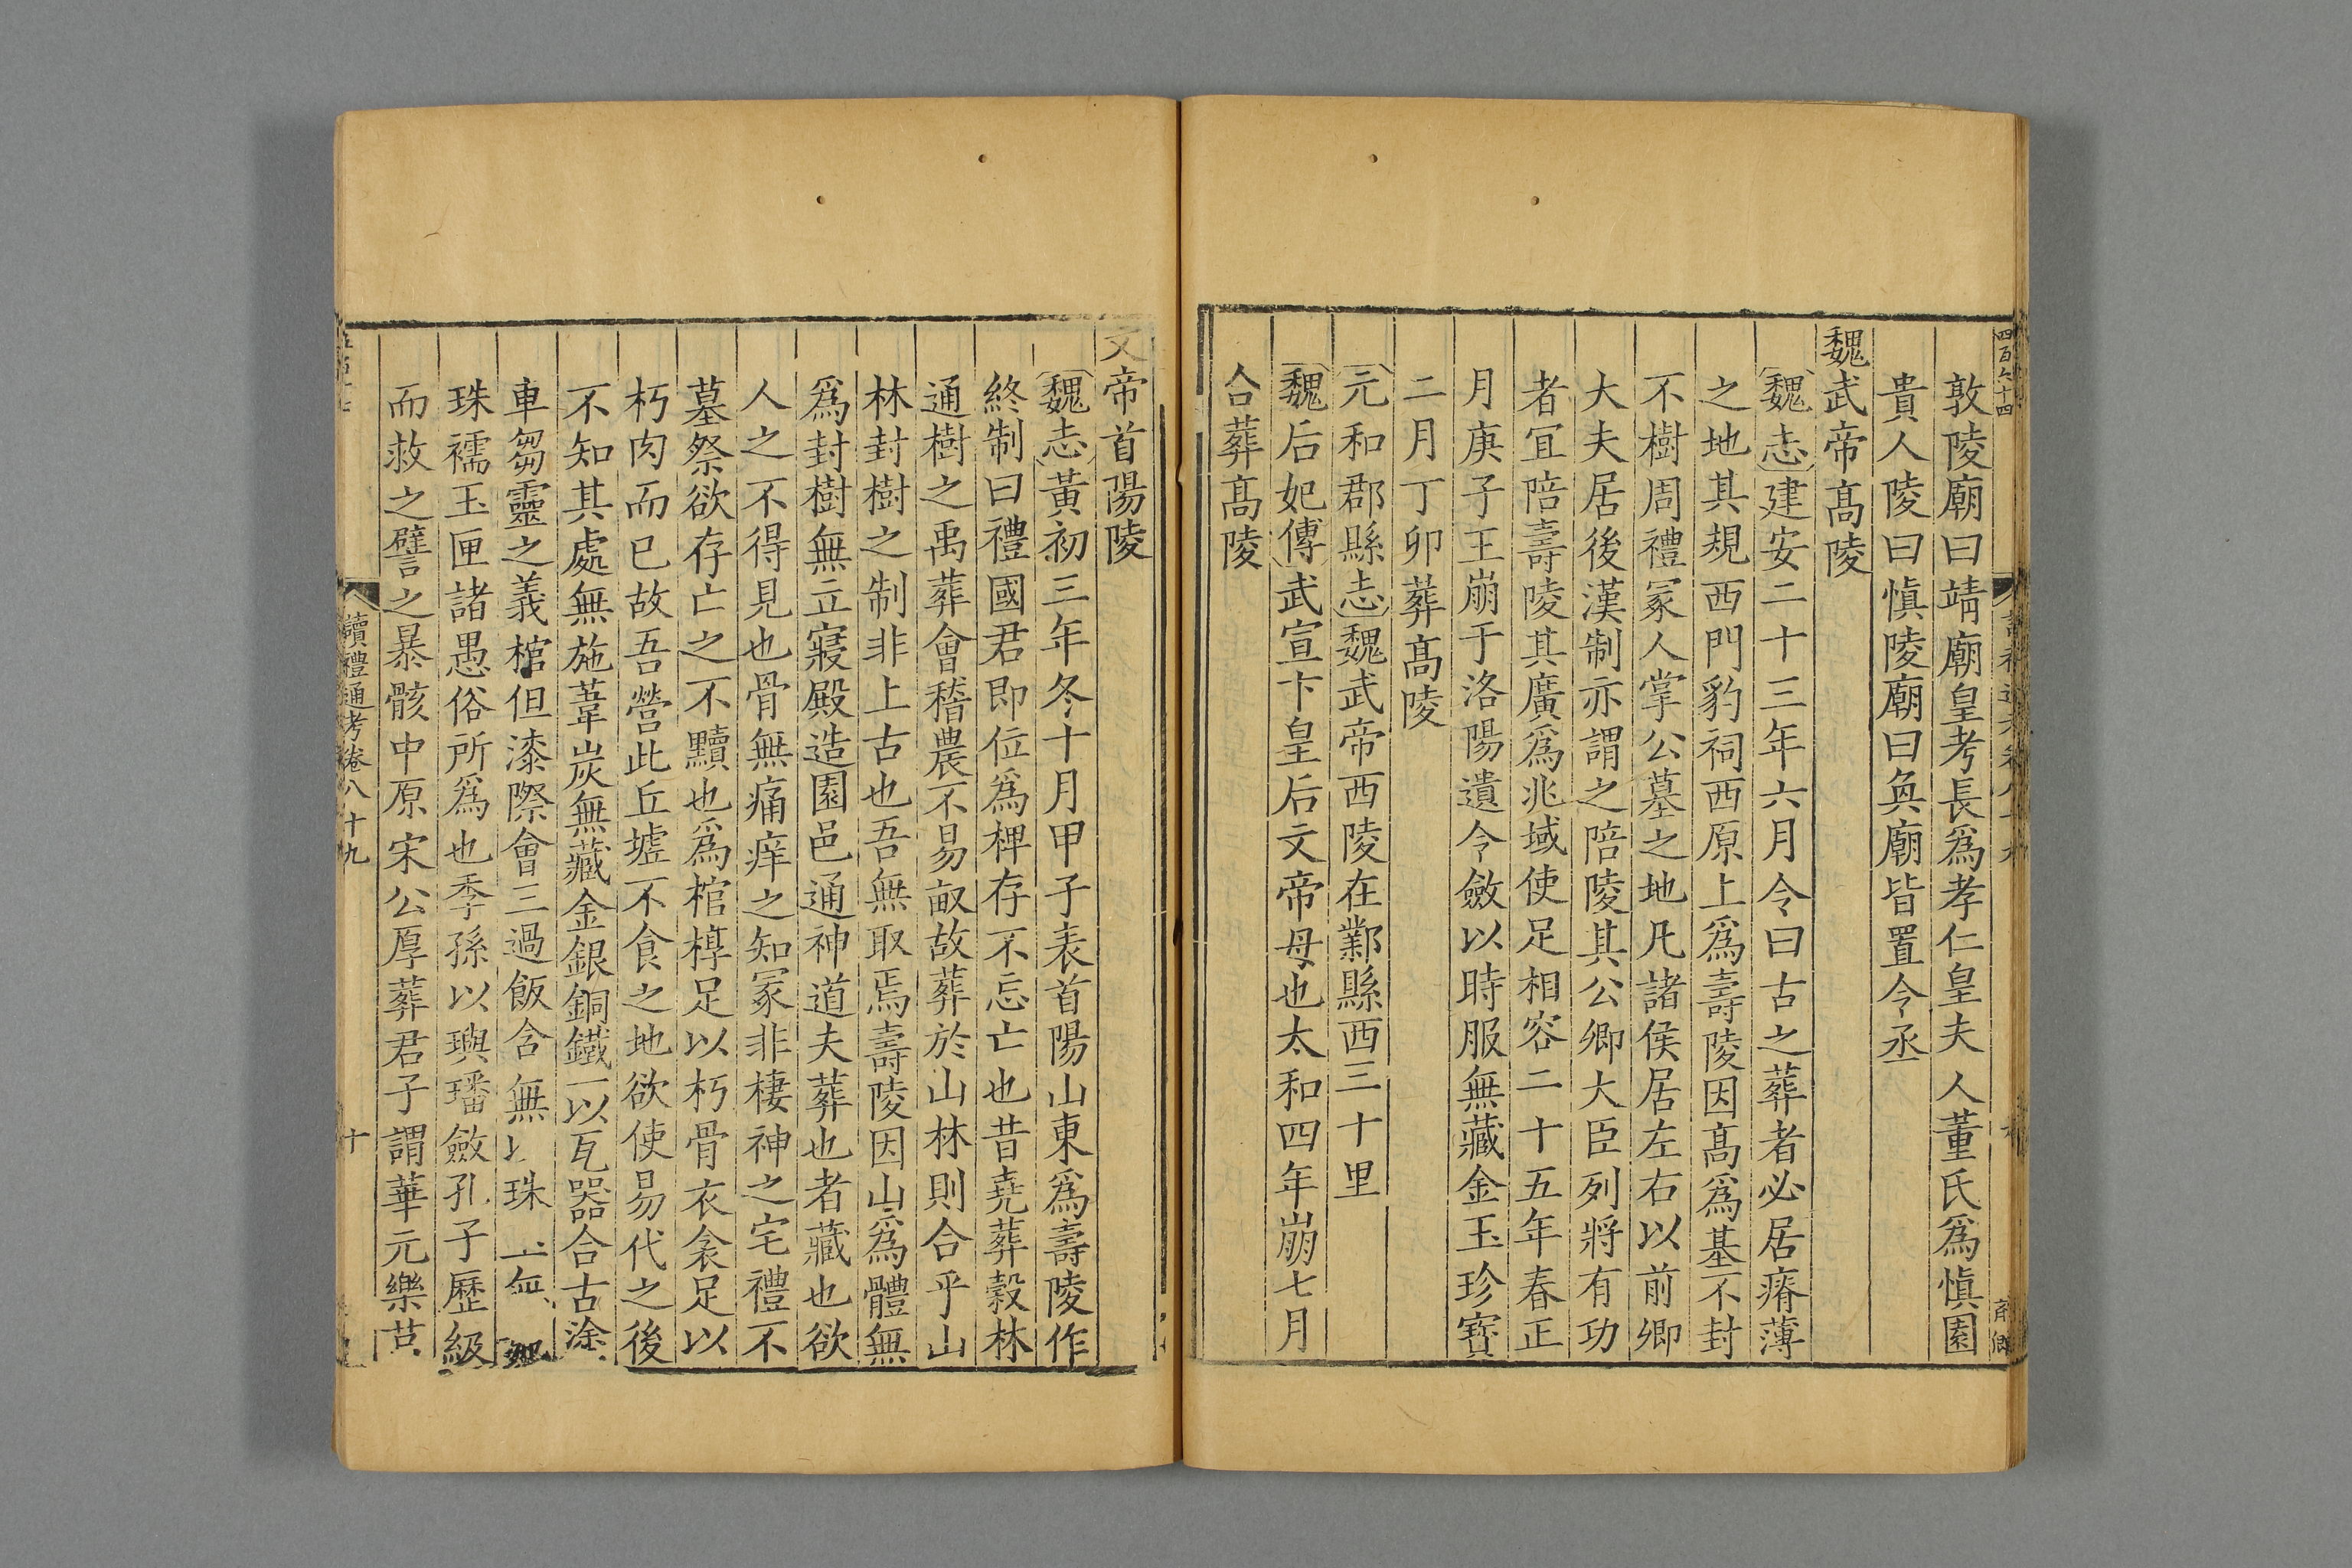 四百六十四
敦陵廟曰靖廟皇考長爲孝仁皇夫人董氏爲愼園
貴人陵曰愼陵廟曰奐廟皆置令丞
魏武帝髙陵
魏志建安二十三年六月令曰古之葬者必居瘠薄
之地其規西門豹祠西原上爲壽陵因髙爲基不封
不樹周禮冢人掌公墓之地凡諸侯居左右以前卿
大夫居後漢制亦謂之陪陵其公卿大臣列將有功
者宜陪壽陵其廣爲兆域使足相容二十五年春正
月庚子王崩于洛陽遺令斂以時服無藏金玉珍寳
二月丁卯葬髙陵
元和郡縣志魏武帝西陵在鄴縣西三十里
魏后妃傳武宣卞皇后文帝母也太和四年崩七月
合葬髙陵
文帝首陽陵
魏志黃初三年冬十月甲子表首陽山東爲壽陵作
終制曰禮國君即位爲椑存不忘亡也昔堯葬穀林
通樹之禹葬會稽農不易畝故葬於山林則合乎山
林封樹之制非上古也吾無取焉壽陵因山爲體無
爲封樹無立寢殿造園邑通神道夫葬也者藏也欲
人之不得見也骨無痛痒之知冢非棲神之宅禮不
墓祭欲存亡之不黷也爲棺椁足以朽骨衣衾足以
朽肉而已故吾營此丘墟不食之地欲使易代之後
不知其處無施葦炭無藏金銀銅鐵一以瓦器合古塗
車芻靈之義棺但漆際會三過飯含無以珠
珠襦玉匣諸愚俗所爲也季孫以璵璠斂孔子歷級
而救之譬之暴骸中原宋公厚葬君子謂華元樂莒
讀禮通考卷八十九
十